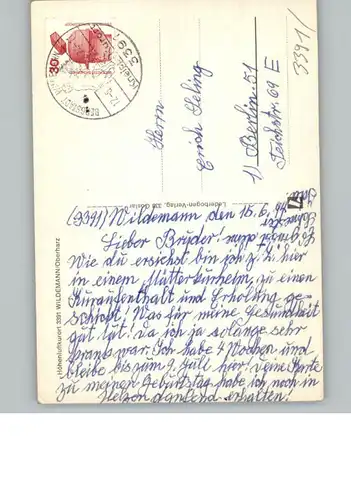 3391/
30
5339
BERGSTADT
Herrn
Erich Seling
1) Berlin 51
Teichstr. 69 E
Lederbogen-Verlag, 338 Goslar
Höhenluftkurort 3391 WILDEMANN/Oberharz
(3391) Wildemann, den 15.6.
Lieber Bruder!
Wie du ersiehst bin ich z. Z. hier
in einem Mütterkurheim, zu einen
Kuraufenthalt und Erholung ge-
schickt! Was für meine Gesundheit
gut tut! da ich ja solange sehr
krank war. Ich habe 4 Wochen und
bleibe bis zum 9. Juli hier! deine Karte
zu meinen Geburtstag habe ich noch in
dankend erhalten!